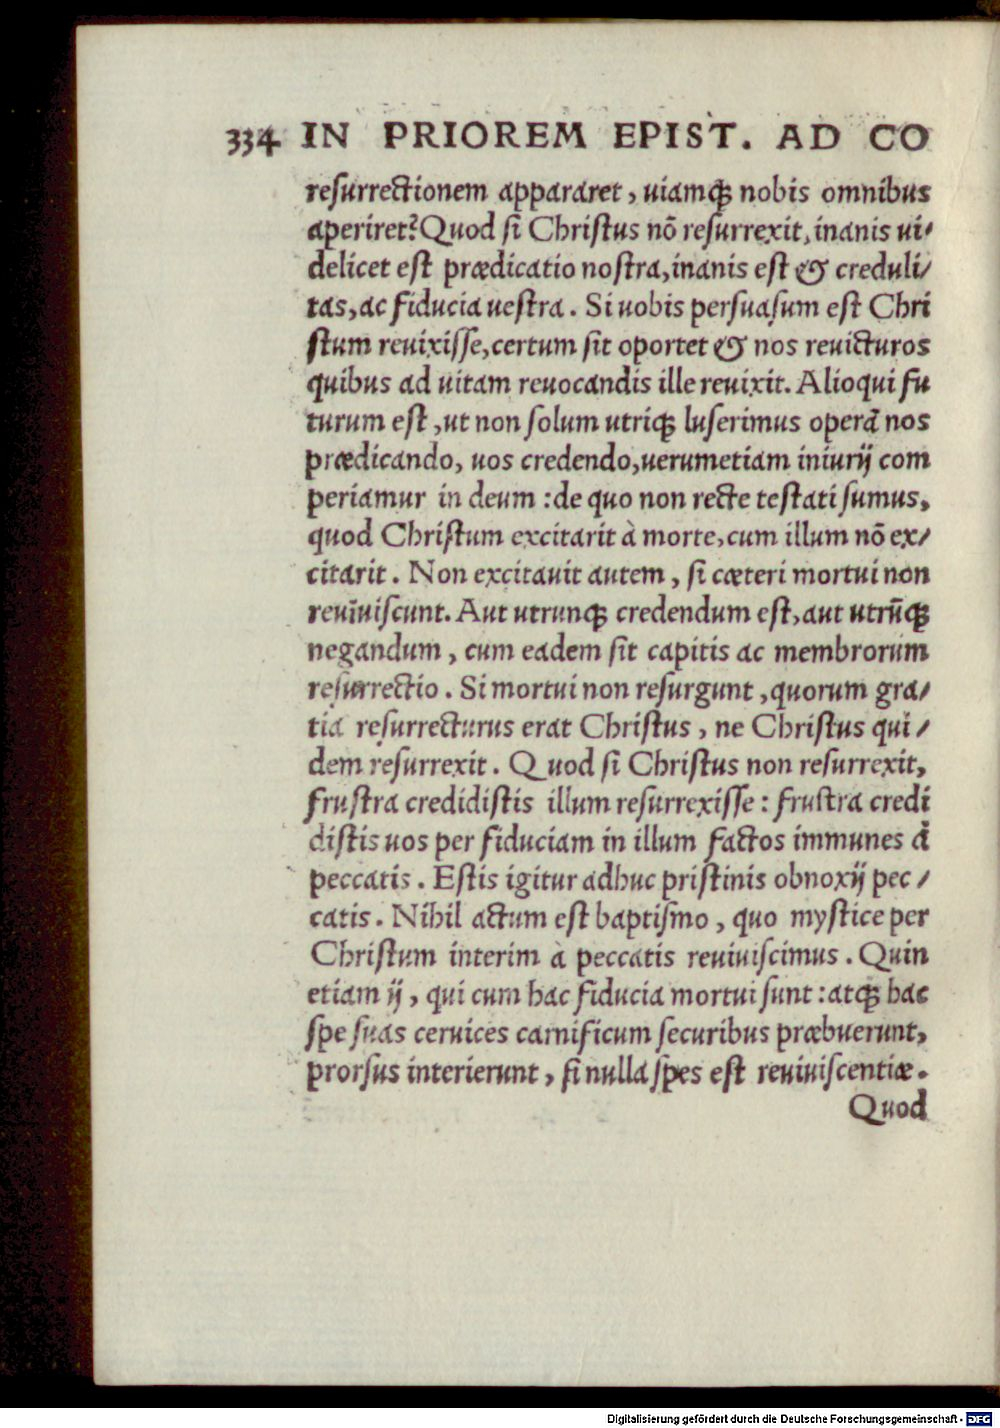 334 IN PRIOREM EPIST. AD CO
resurrectionem appararet, uiamq́; nobis omnibus
aperiret? Quod si Christus nõ resurrexit, inanis ui-
delicet est prædicatio nostra, inanis est & creduli-
tas, ac fiducia uestra. Si uobis persuasum est Chri
stum reuixisse, certum sit oportet & nos reuicturos
quibus ad uitam reuocandis ille reuixit. Alioqui fu
turum est, ut non solum utriq; luserimus operã nos
prædicando, uos credendo, uerumetiam iniurij com
periamur in deum: de quo non recte testati sumus,
quod Christum excitarit à morte, cum illum nõ ex-
citarit. Non excitauit autem, si cæteri mortui non
reuiuiscunt. Aut utrunq; credendum est, aut utrũq;
negandum, cum eadem sit capitis ac membrorum
resurrectio. Si mortui non resurgunt, quorum gra-
tia resurrecturus erat Christus, ne Christus qui-
dem resurrexit. Quod si Christus non resurrexit,
frustra credidistis illum resurrexisse: frustra credi
distis uos per fiduciam in illum factos immunes à
peccatis. Estis igitur adhuc pristinis obnoxij pec-
catis. Nihil actum est baptismo, quo mystice per
Christum interim à peccatis reuiuiscimus. Quin
etiam ij, qui cum hac fiducia mortui sunt: atq; hac
spe suas ceruices carnificum securibus præbuerunt,
prorsus interierunt, si nulla spes est reuiuiscentiæ.
Quod
Digitalisierung gefördert durch die Deutsche Forschungsgemeinschaft - DFG